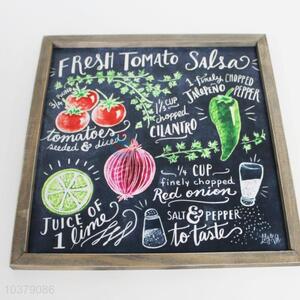 FRESH TOMATO SALSA
3/4 POUND
tomatoes
seeded & diced
1/3 CUP
chopped
CILANTRO
1 finely CHOPPED
JALAPEÑO PEPPER
1/4 CUP
finely chopped
Red onion
JUICE OF
1 lime
SALT & PEPPER
to taste
10379086